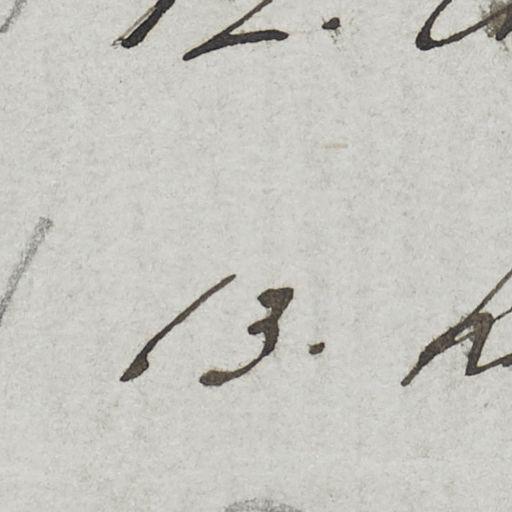 12.
13.